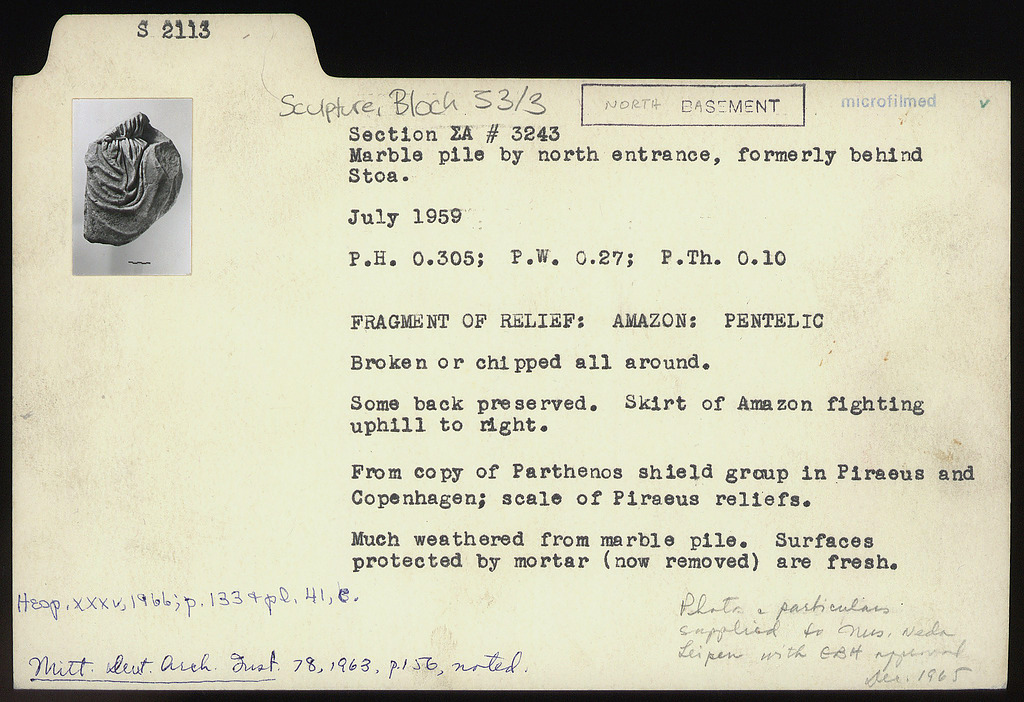 S 2113
Sculpture, Block 53/3
NORTH BASEMENT
microfilmed
Section ΣΑ # 3243
Marble pile by north entrance, formerly behind
Stoa.
July 1959
P.H. 0.305; P.W. 0.27; P.Th. 0.10
FRAGMENT OF RELIEF: AMAZON: PENTELIC
Broken or chipped all around.
Some back preserved. Skirt of Amazon fighting
uphill to right.
From copy of Parthenos shield group in Piraeus and
Copenhagen; scale of Piraeus reliefs.
Much weathered from marble pile. Surfaces
protected by mortar (now removed) are fresh.
Hesp. XXXV, 1966; p. 133 + pl. 41, e.
Photos & particulars
supplied to Mrs. Neda
Leipen with EBH approval
Dec. 1965
Mitt. Deut. Arch. Inst. 78, 1963, p. 156, noted.